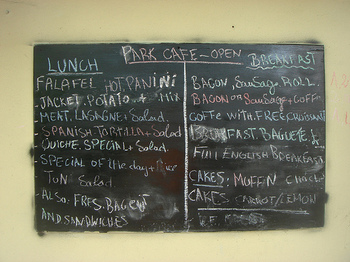 PARK CAFE - OPEN
LUNCH
FALAFEL HOT PANINI
- JACKET POTATO + MIX
- MEAT LASAGNE + Salad.
- SPANISH TORTILLA + Salad
QUICHE SPECIAL + Salad.
- SPECIAL OF the day +
Salad
- ALSO. FRES. BAGUET
AND SANDWICHES
BREAKFAST
BACON, SauSage ROLL.
BACON OR SauSage + COFFe
COFFe WITH FREE CROISSANT
BREAKFAST. BAGUETE.
FUll ENGLISH BREAKFAST
CAKES: MUFFIN
CAKES CARROT/LEMON